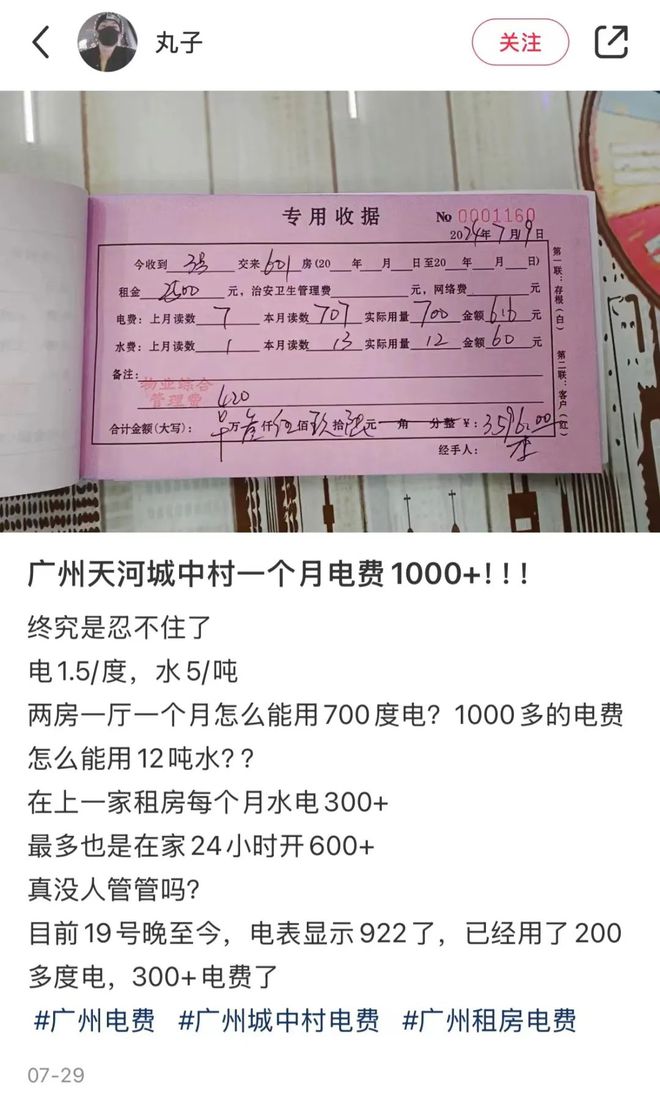 丸子
关注
专用收据
No 0001160
2024年7月19日
今收到 3号 交来 601 房(20 年 月 日至20 年 月 日)
租金 2500 元，治安卫生管理费 元，网络费 元
电费：上月读数 7 本月读数 707 实际用量 700 金额 616 元
水费：上月读数 1 本月读数 13 实际用量 12 金额 60 元
备注：
物业综合
管理费 420
合计金额(大写)： 万叁仟伍佰玖拾陆元 角 分整 ¥：3596.00
经手人：
第一联：存根(白)
第二联：客户(红)
广州天河城中村一个月电费1000+！！！
终究是忍不住了
电1.5/度，水5/吨
两房一厅一个月怎么能用700度电？1000多的电费
怎么能用12吨水？？
在上一家租房每个月水电300+
最多也是在家24小时开600+
真没人管管吗？
目前19号晚至今，电表显示922了，已经用了200
多度电，300+电费了
#广州电费 #广州城中村电费 #广州租房电费
07-29